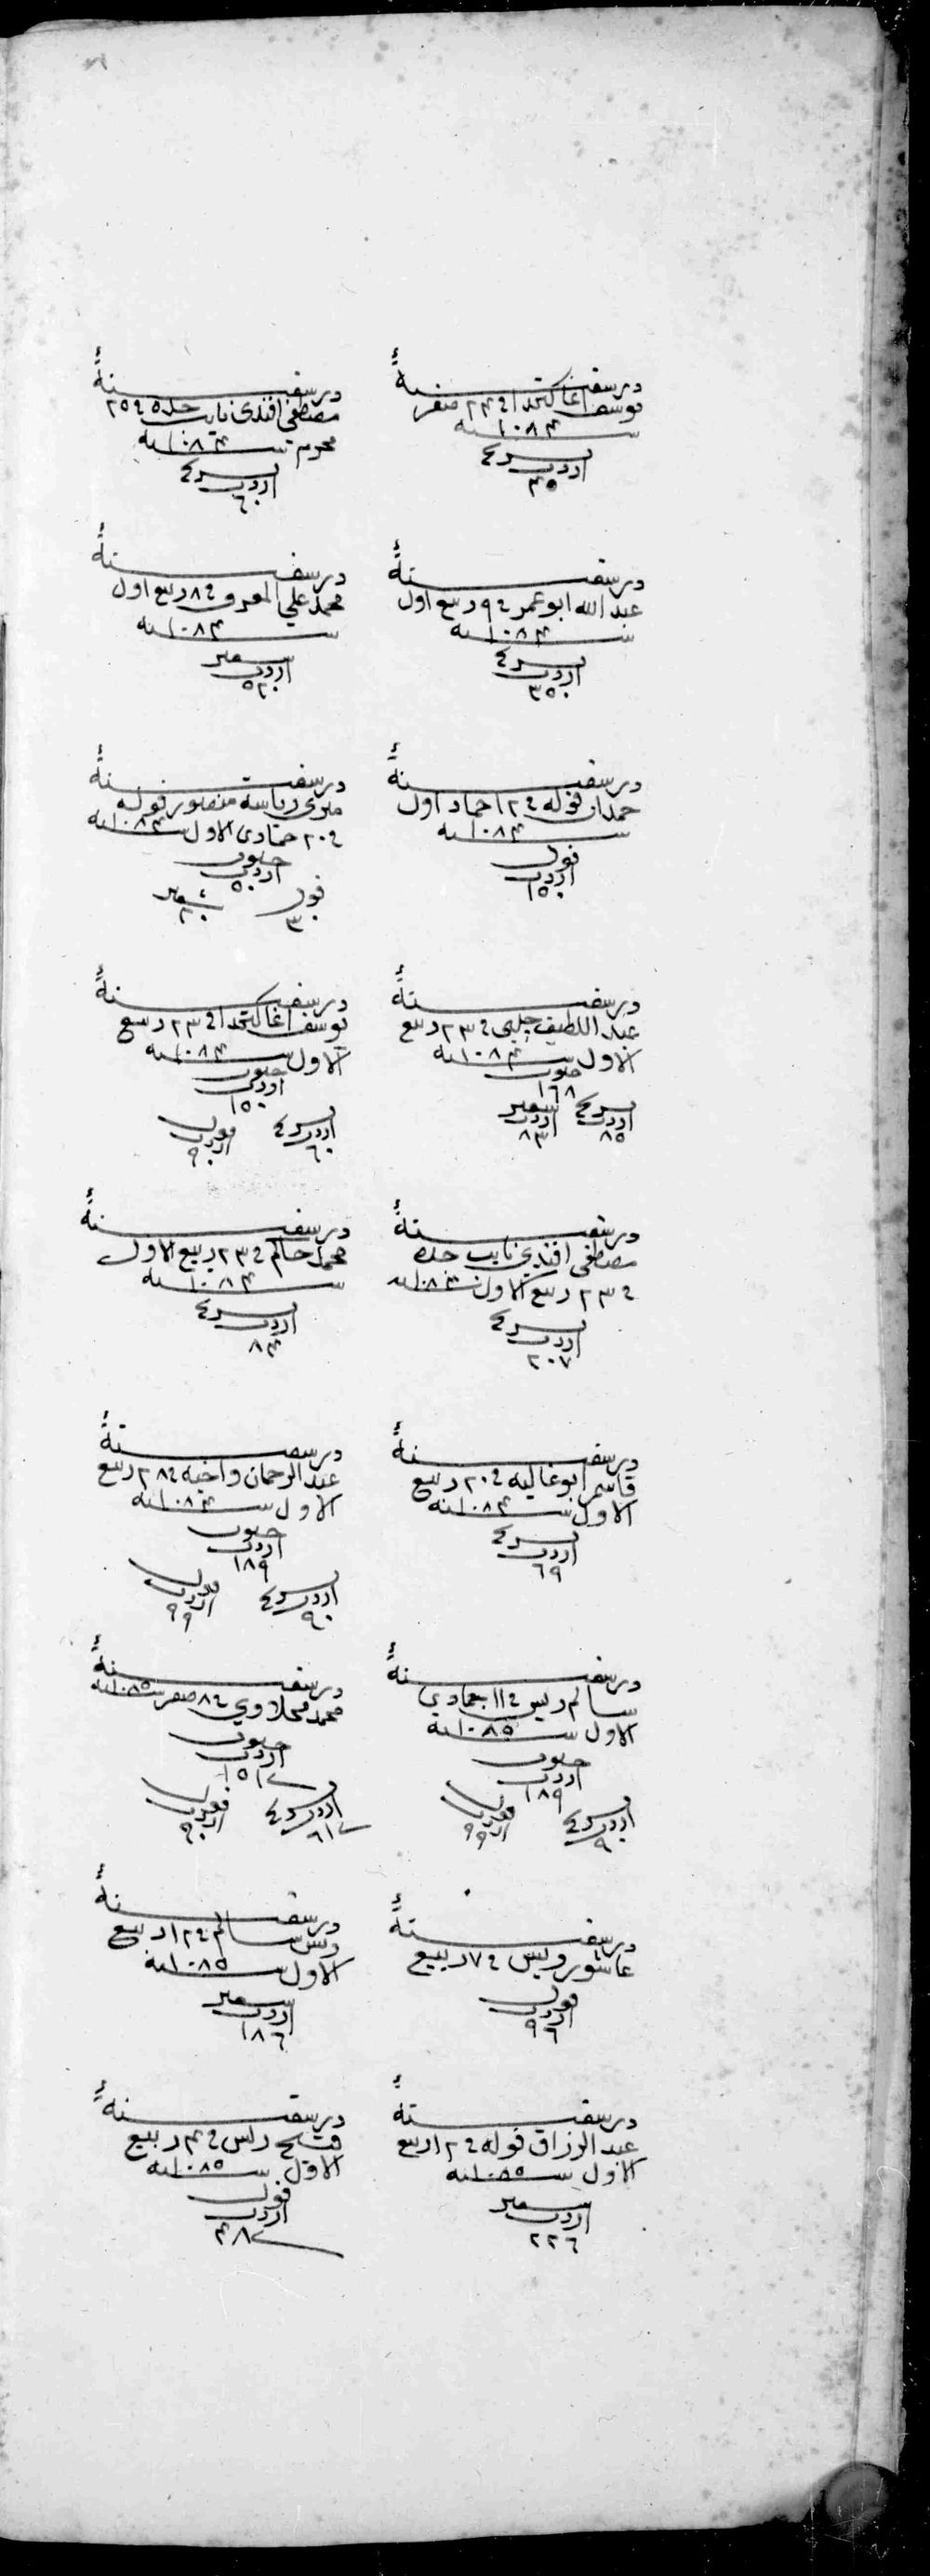 در سفينة
يوسف اغا كتخدا في ٢٤ صفر
سنه ١٠٨٤
اردب
٤٥
در سفينة
مصطفى افندي نايب جده في ٢٥
محرم سنه ١٠٨٤
اردب
٦٠
در سفينة
عبد الله ابو عمر في ٩ ربيع اول
سنه ١٠٨٤
اردب
٣٥٠
در سفينة
محمد علي المعرف في ٨ ربيع اول
سنه ١٠٨٤
شعير
اردب
٥٢٠
در سفينة
حمدان قوله في ١٢ جماد اول
سنه ١٠٨٤
فول
اردب
١٥٠
در سفينة
ميري رياسة منصور قوله
في ٢٠ جمادى الاول سنه ١٠٨٤
حبوب
اردب
٥٠
فول شعير
٣٠ ٢٠
در سفينة
عبد اللطيف چلبي في ٢٣ ربيع
الاول سنه ١٠٨٤
حبوب
١٦٨
شعير
اردب اردب
٨٥ ٨٣
در سفينة
يوسف اغا كتخدا في ٢٣ ربيع
الاول سنه ١٠٨٤
حبوب
اردب
١٥٠
فول
اردب اردب
٦٠ ٩٠
در سفينة
مصطفى افندي نايب جده
في ٢٣ ربيع الاول سنه ١٠٨٤
اردب
٢٠٧
در سفينة
محمد حاكم في ٢٣ ربيع الاول
سنه ١٠٨٤
اردب
٨٤
در سفينة
قاسم ابو غاليه في ٢٠ ربيع
الاول سنه ١٠٨٤
اردب
٦٩
در سفينة
عبد الرحمان واخيه في ٢٨ ربيع
الاول سنه ١٠٨٤
حبوب
اردب
١٨٩
فول
اردب اردب
٩٠ ٩٩
در سفينة
سالم ريس في ١١ جمادي
الاول سنه ١٠٨٥
حبوب
اردب
١٨٩
فول
اردب اردب
٩٠ ٩٩
در سفينة
محمد محلاوي في ٨ صفر سنه ١٠٨٥
حبوب
اردب
١٥١
فول
اردب اردب
٦١ ٩٠
در سفينة
عاشور ريس في ٧ ربيع
فول
اردب
٩٦
در سفينة
ريس سالم في ١٢ ربيع
الاول سنه ١٠٨٥
شعير
اردب
١٨٦
در سفينة
عبد الرزاق قوله في ١٢ ربيع
الاول سنه ١٠٨٥
شعير
اردب
٢٢٦
در سفينة
فتح ريس في ٤ ربيع
الاول سنه ١٠٨٥
فول
اردب
٤٨